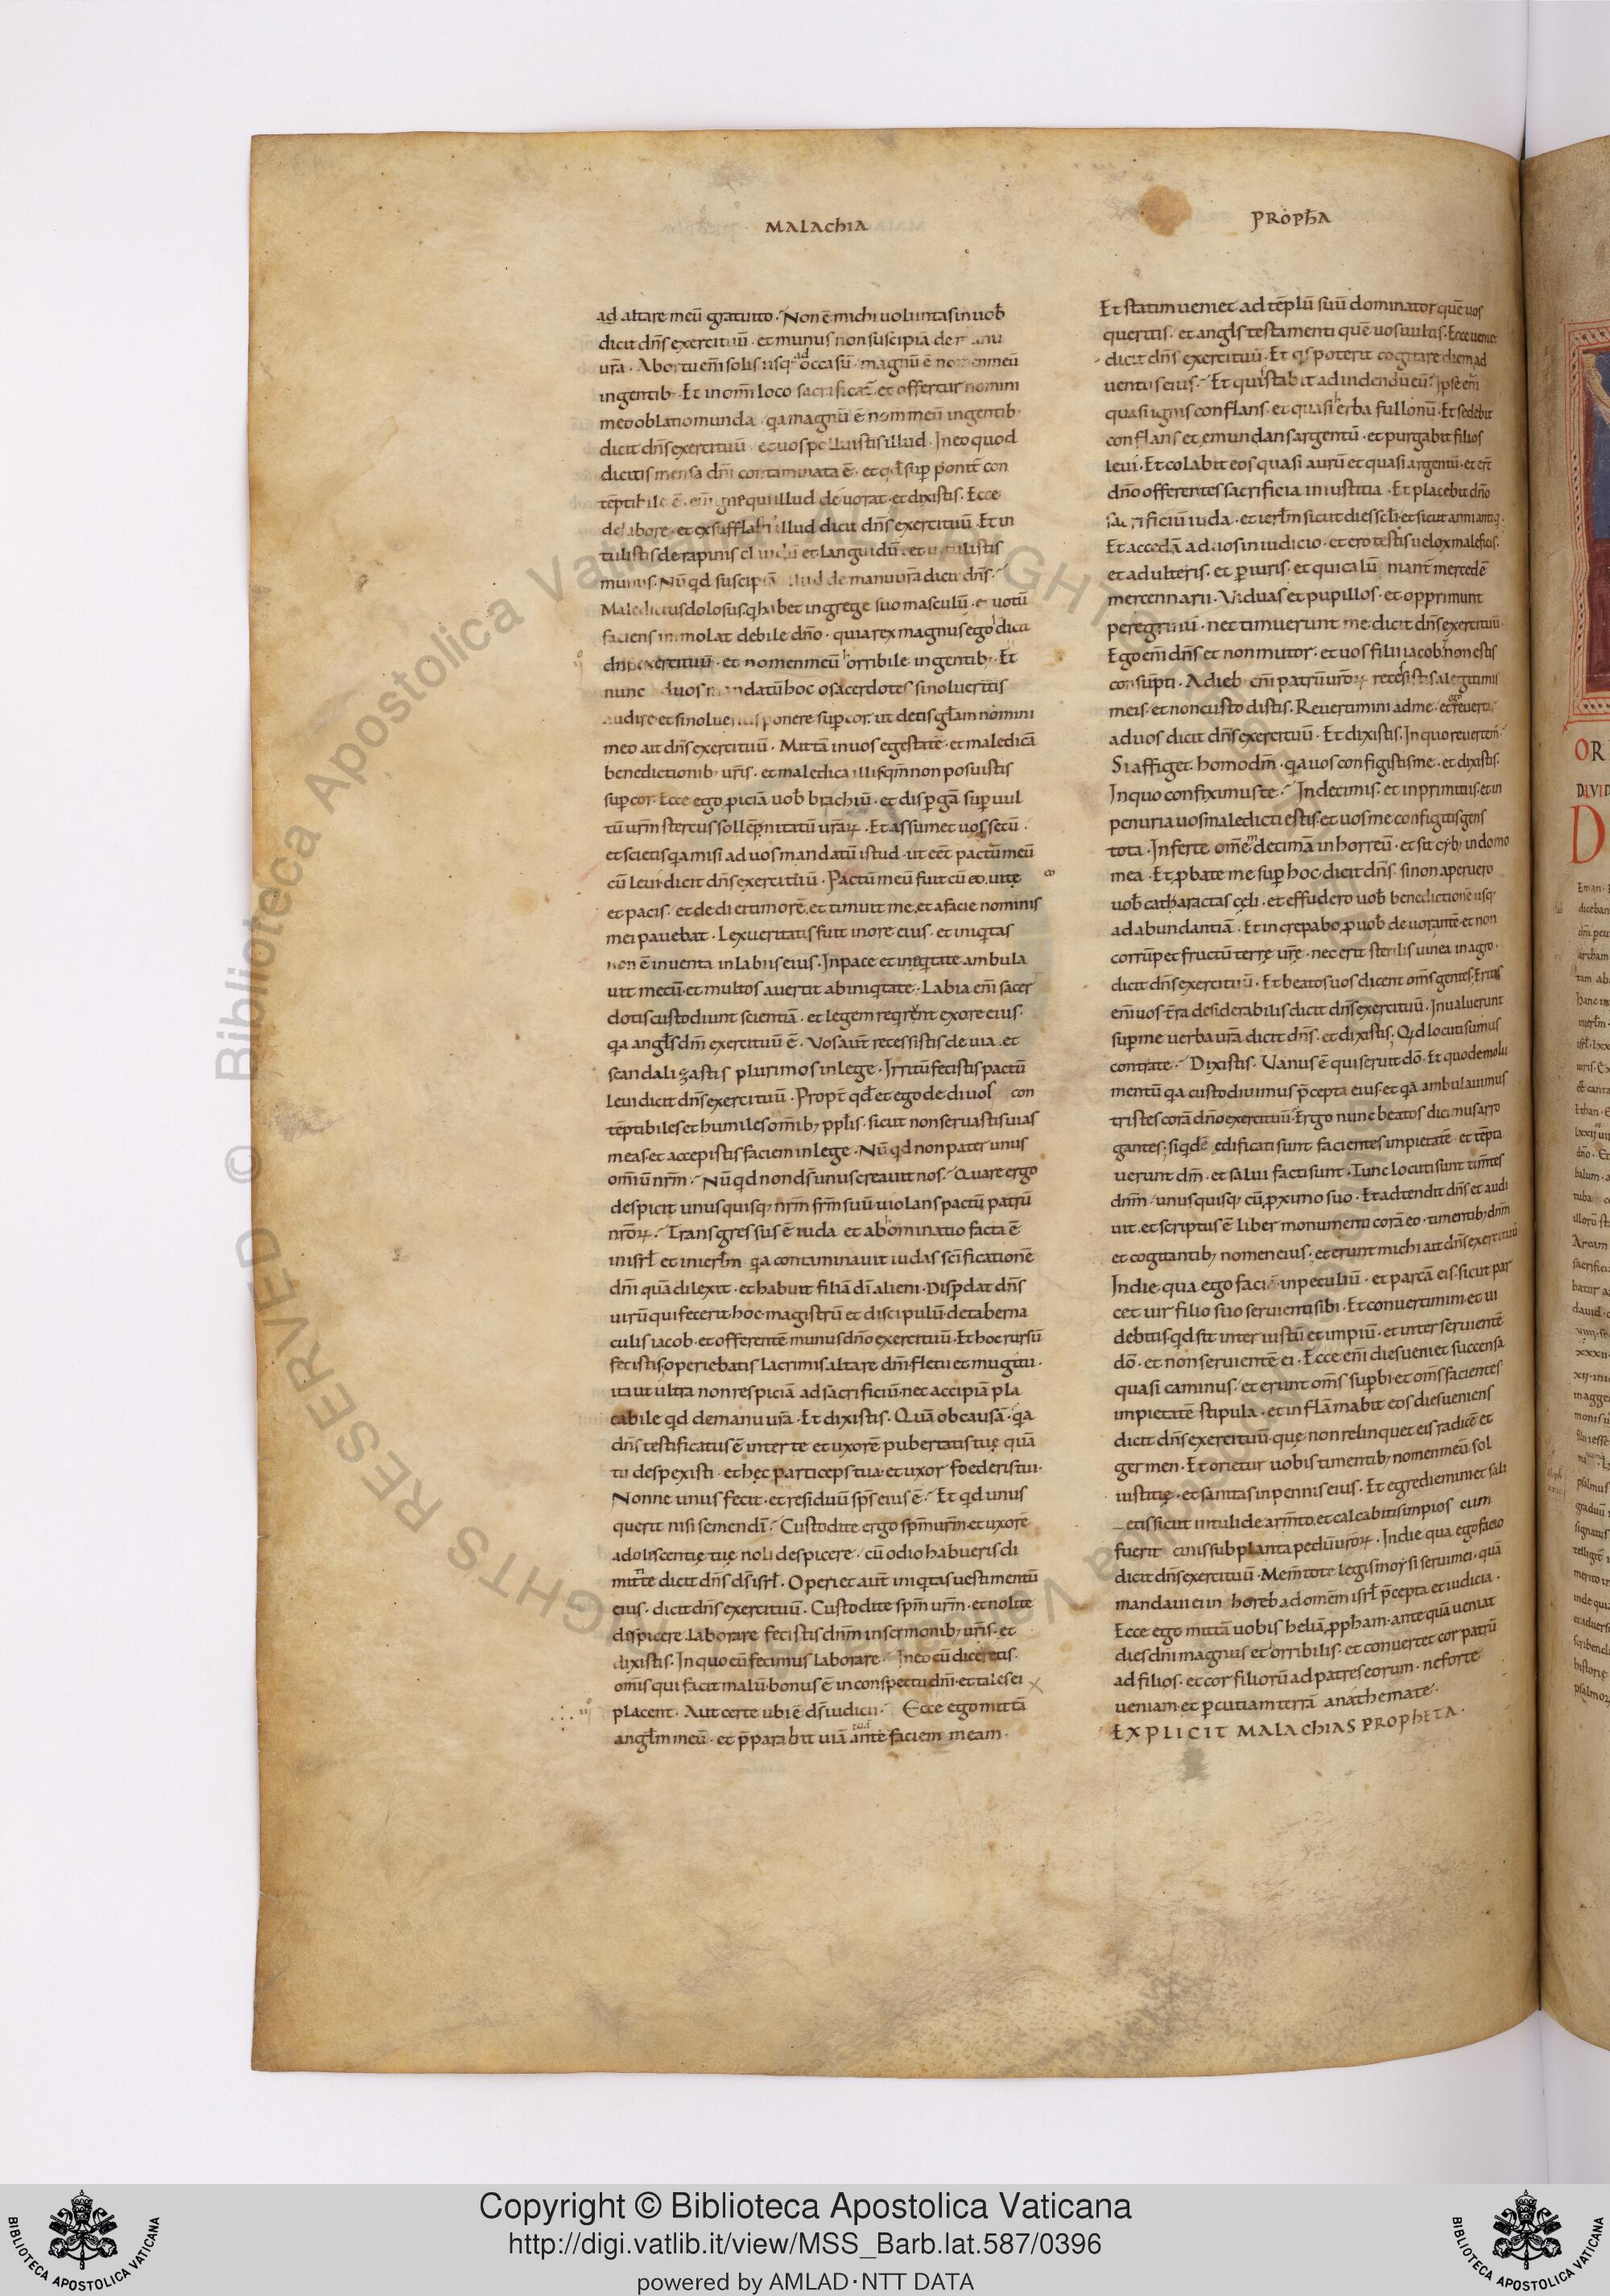 MALAChIA
PROPħA
ad altare meū gratuito. Non ē michi uoluntas in uob̄
dicit dn̄s exercituū. et munus non suscipiā de manu
ur̄a. Ab ortu em̄ solis usq; ad occasū. magnū ē nomen meū
in gentib; Et in om̄i loco sacrificat̄ et offertur nomini
meo oblatio munda. qa magnū ē nomen meū in gentib;
dicit dn̄s exercituū. et uos polluistis illud. In eo quod
dicitis mensa dn̄i contaminata ē. et qd̄ sup̄ponit̄ con
tēptibile ē. cū igne qui illud deuorat. et dixistis. Ecce
de labore. et exsufflastis illud dicit dn̄s exercituū. Et in
tulistis de rapinis claudū et languidū. et intulistis
munus. Nūqd suscipiā illud de manu ur̄a dicit dn̄s.
Maledictus dolosus. q habet in grege suo masculū. et uotū
faciens immolat debile dn̄o. quia rex magnus ego dicit
dn̄s exercituū. et nomen meū horribile in gentib; Et
nunc ad uos mandatū hoc o sacerdotes si nolueritis
audire. et si nolueritis ponere sup̄ cor. ut detis gl̄am nomini
meo ait dn̄s exercituū. Mittā in uos egestatē. et maledicā
benedictionib; ur̄is. et maledicā illis. qm̄ non posuistis
sup̄ cor. Ecce ego p̄iciā uob̄ brachiū. et disp̄gā sup̄ uul
tū ur̄m stercus sollēpnitatū ur̄aꝝ. Et assumet uos secū.
et scietis qa misi ad uos mandatū istud. ut eēt pactū meū
cū leui. dicit dn̄s exercituū. Pactū meū fuit cū eo. uitę
et pacis. et dedi ei timorē. et timuit me. et a facie nominis
mei pauebat. Lex ueritatis fuit in ore eius. et iniqtas
non ē inuenta in labiis eius. In pace et in eqtate ambula
uit mecū. et multos auertit ab iniqtate. Labia em̄ sacer
dotis custodiunt scientiā. et legem reqrent ex ore eius.
qa angl̄s dn̄i exercituū ē. Vos aut̄ recessistis de uia. et
scandalizastis plurimos in lege. Irritū fecistis pactū
leui dicit dn̄s exercituū. Propt̄ qd̄ et ego dedi uos con
tēptibiles et humiles om̄ib; ppl̄is. sicut non seruastis uias
meas. et accepistis faciem in lege. Nūqd non pater unus
om̄iū nr̄m. Nūqd non ds̄ unus creauit nos. Quare ergo
despicit unusquisq; nr̄m fr̄m suū uiolans pactū patrū
nr̄oꝝ. Transgressus ē iuda et abominatio facta ē
in isrł et in ierłm qa contaminauit iudas sc̄ificationē
dn̄i quā dilexit. et habuit filiā dī alieni. Disp̄dat dn̄s
uirū qui fecerit hoc. magistrū et discipulū. de taberna
culis iacob. et offerentē munus dn̄o exercituū. Et hoc rursū
fecistis. operiebatis lacrimis altare dn̄i fletu et mugitu.
ita ut ultra non respiciā ad sacrificiū. nec accipiā pla
cabile qd de manu ur̄a. Et dixistis. Quā ob causā. qa
dn̄s testificatus ē inter te et uxorē pubertatis tuę quā
tu despexisti. et hec particeps tua. et uxor foederis tui.
Nonne unus fecit. et residuū sps̄ eius ē. Et qd unus
querit nisi semen dī. Custodite ergo spm̄ ur̄m. et uxorē
adoliscentię tuę noli despicere. cū odio habueris di
mitte dicit dn̄s ds̄ isrł. Operiet aut̄ iniqtas uestimentū
eius. dicit dn̄s exercituū. Custodite spm̄ ur̄m. et nolite
despicere. Laborare fecistis dn̄m in sermonib; ur̄is. et
dixistis. In quo eū fecimus laborare. In eo cū diceretis.
om̄is qui facit malū. bonus ē in conspectu dn̄i. et tales ei
placent. Aut certe ubi ē ds̄ iudicii. Ecce ego mittā
angłm meū. et p̄parabit uiā ante faciem meam.
Et statim ueniet ad tēplū suū dominator quē uos
queritis. et angl̄s testamenti quē uos uultis. Ecce uenit
dicit dn̄s exercituū. Et qs poterit cogitare diem ad
uentus eius. Et quis stabit ad uidendū eū. ipse em̄
quasi ignis conflans. et quasi herba fullonū. Et sedebit
conflans et emundans argentū. et purgabit filios
leui. Et colabit eos quasi aurū et quasi argentū. et er̄t
dn̄o offerentes sacrificia in iustitia. Et placebit dn̄o
sacrificiū iuda. et ierłm sicut dies sc̄li. et sicut anni antiq.
Et accedā ad uos in iudicio. et ero testis uelox maleficis.
et adulteris. et p̄iuris. et qui calūniant mercedē
mercennarii. Viduas et pupillos. et opprimunt
peregrinū. nec timuerunt me. dicit dn̄s exercituū.
Ego em̄ dn̄s et non mutor. et uos filii iacob non estis
consūpti. A dieb; em̄ patrū ur̄oꝝ recessistis a legitimis
meis. et non custodistis. Reuertimini ad me. et ego reuertar
ad uos dicit dn̄s exercituū. Et dixistis. In quo reuertem̄.
Si affiget homo dm̄. qa uos configistis me. et dixistis.
In quo confiximus te. In decimis. et in primitiis. et in
penuria uos maledicti estis. et uos me configitis gens
tota. Inferte om̄ē decimā in horreū. et sit cyb; in domo
mea. Et p̄bate me sup̄ hoc. dicit dn̄s. si non aperuero
uob̄ catharactas cęli. et effudero uob̄ benedictionē usq;
ad abundantiā. Et increpabo p̄ uob̄ deuorantē. et non
corrūpet fructū terrę ur̄ę. nec erit sterilis uinea in agro.
dicit dn̄s exercituū. Et beatos uos dicent om̄s gentes. Eritis
em̄ uos tr̄a desiderabilis dicit dn̄s exercituū. Inualuerunt
sup̄ me uerba ur̄a dicit dn̄s. et dixistis; Qd locuti sumus
contra te. Dixistis. Vanus ē qui seruit dō. Et quod emolu
mentū qa custodiuimus p̄cepta eius. et qa ambulauimus
tristes corā dn̄o exercituū. Ergo nunc beatos dicimus arro
gantes; siqdē edificati sunt facientes impietatē et tēpta
uerunt dm̄. et salui facti sunt. Tunc locuti sunt tim̄tes
dn̄m. unusquisq; cū p̄ximo suo. Et adtendit dn̄s et audi
uit. et scriptus ē liber monumenti corā eo. timentib; dn̄m
et cogitantib; nomen eius. et erunt michi ait dn̄s exercituū
In die qua ego faciā in peculiū. et parcā eis. sicut par
cet uir filio suo seruienti sibi. Et conuertimini. et ui
debitis. qd sit inter iustū et impiū. et inter seruientē
dō. et non seruientē ei. Ecce em̄ dies ueniet succensa
quasi caminus. et erunt om̄s sup̄bi. et om̄s facientes
impietatē stipula. et inflāmabit eos dies ueniens
dicit dn̄s exercituū. quę non relinquet eis radicē et
germen. Et orietur uobis timentib; nomen meū sol
iustitię. et sanitas in pennis eius. Et egrediemini et sali
etis sicut uituli de arm̄to. et calcabitis impios cum
fuerit cinis sub planta pedū ur̄oꝝ. In die qua ego facio
dicit dn̄s exercituū. Mem̄tote legis moysi serui mei. quā
mandaui ei in horeb ad omēm isrł p̄cepta et iudicia.
Ecce ego mittā uobis heliā ppħam. ante quā ueniat
dies dn̄i magnus et orribilis. et conuertet cor patrū
ad filios. et cor filiorū ad patres eorum. ne forte
ueniam. et p̄cutiam terrā anathemate.
EXPLICIT MALACHIAS PROPHETA.
Copyright © Biblioteca Apostolica Vaticana
http://digi.vatlib.it/view/MSS_Barb.lat.587/0396
powered by AMLAD·NTT DATA
BIBLIOTECA APOSTOLICA VATICANA
BIBLIOTECA APOSTOLICA VATICANA